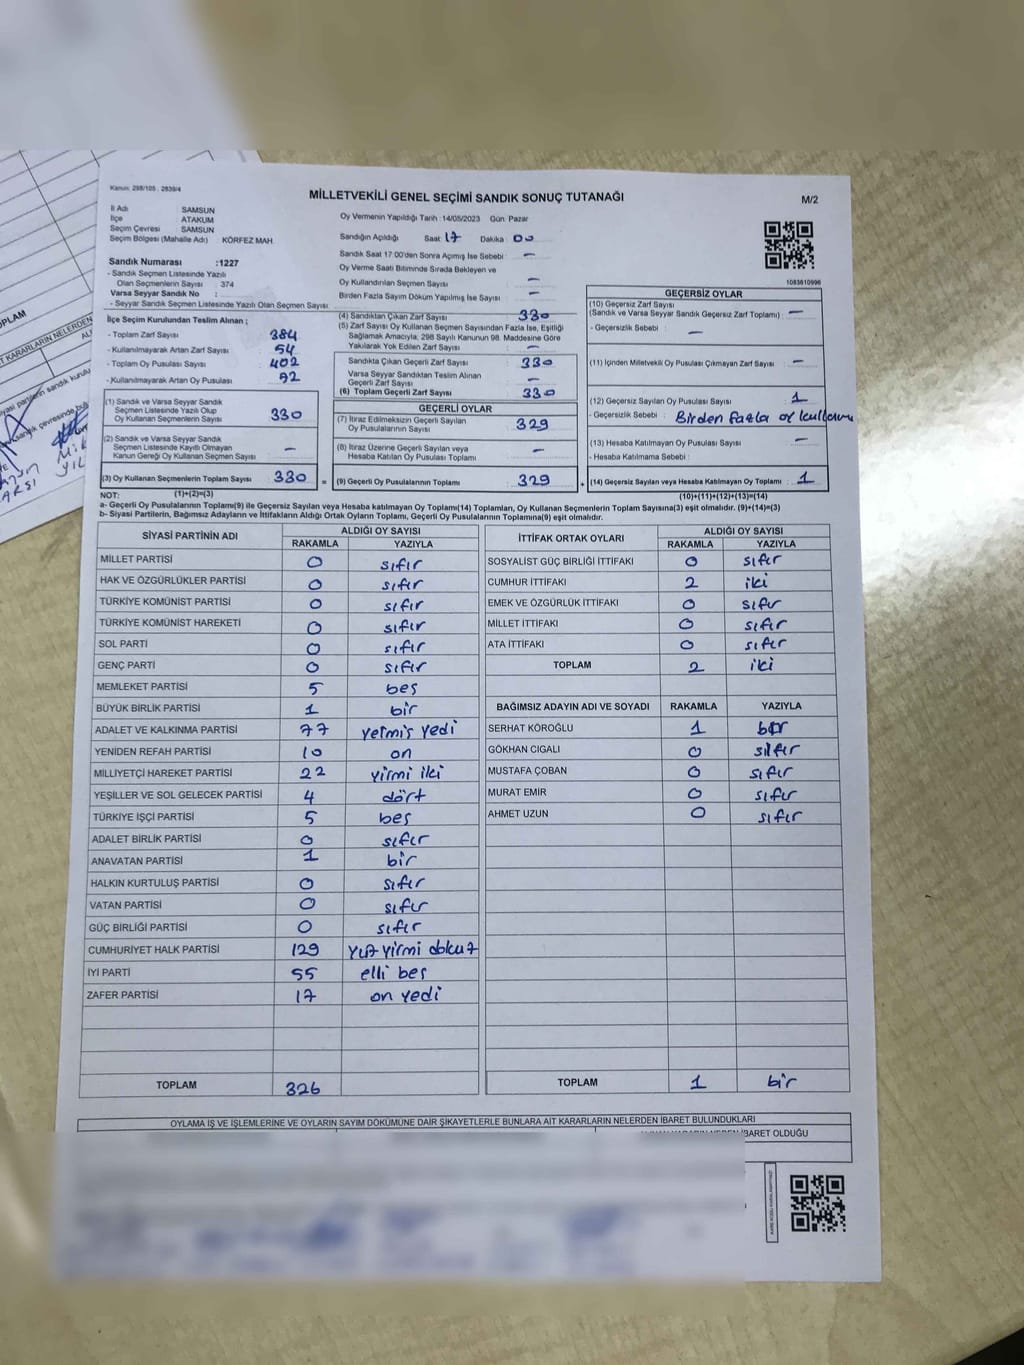 Kanun: 298/105 , 2839/4
MİLLETVEKİLİ GENEL SEÇİMİ SANDIK SONUÇ TUTANAĞI
M/2
İl Adı SAMSUN
İlçe ATAKUM
Seçim Çevresi SAMSUN
Seçim Bölgesi (Mahalle Adı) KÖRFEZ MAH.
Oy Vermenin Yapıldığı Tarih :14/05/2023 Gün: Pazar
Sandığın Açıldığı Saat 17 Dakika 00
Sandık Saat 17:00'den Sonra Açımış İse Sebebi : —
Oy Verme Saati Bitiminde Sırada Bekleyen ve
Oy Kullandırılan Seçmen Sayısı —
Birden Fazla Sayım Döküm Yapılmış İse Sayısı : —
Sandık Numarası :1227
- Sandık Seçmen Listesinde Yazılı
Olan Seçmenlerin Sayısı : 374
Varsa Seyyar Sandık No :
- Seyyar Sandık Seçmen Listesinde Yazılı Olan Seçmen Sayısı:
1083610996
İlçe Seçim Kurulundan Teslim Alınan ;
- Toplam Zarf Sayısı 384
- Kullanılmayarak Artan Zarf Sayısı 54
- Toplam Oy Pusulası Sayısı 402
- Kullanılmayarak Artan Oy Pusulası 72
(1) Sandık ve Varsa Seyyar Sandık
Seçmen Listesinde Yazılı Olup
Oy Kullanan Seçmenlerin Sayısı 330
(2) Sandık ve Varsa Seyyar Sandık
Seçmen Listesinde Kayıtlı Olmayan
Kanun Gereği Oy Kullanan Seçmen Sayısı —
(3) Oy Kullanan Seçmenlerin Toplam Sayısı 330 =
(4) Sandıktan Çıkan Zarf Sayısı 330
(5) Zarf Sayısı Oy Kullanan Seçmen Sayısından Fazla İse, Eşitliği
Sağlamak Amacıyla, 298 Sayılı Kanunun 98. Maddesine Göre
Yakılarak Yok Edilen Zarf Sayısı —
Sandıkta Çıkan Geçerli Zarf Sayısı 330
Varsa Seyyar Sandıktan Teslim Alınan
Geçerli Zarf Sayısı —
(6) Toplam Geçerli Zarf Sayısı 330
GEÇERLİ OYLAR
(7) İtiraz Edilmeksizin Geçerli Sayılan
Oy Pusulalarının Sayısı 329
(8) İtiraz Üzerine Geçerli Sayılan veya
Hesaba Katılan Oy Pusulası Toplamı —
(9) Geçerli Oy Pusulalarının Toplamı 329 +
GEÇERSİZ OYLAR
(10) Geçersiz Zarf Sayısı
(Sandık ve Varsa Seyyar Sandık Geçersiz Zarf Toplamı) : —
- Geçersizlik Sebebi : —
(11) İçinden Milletvekili Oy Pusulası Çıkmayan Zarf Sayısı : —
(12) Geçersiz Sayılan Oy Pusulası Sayısı : 1
- Geçersizlik Sebebi : Birden fazla oy
(13) Hesaba Katılmayan Oy Pusulası Sayısı : —
- Hesaba Katılmama Sebebi :
(14) Geçersiz Sayılan veya Hesaba Katılmayan Oy Toplamı : 1
NOT: (1)+(2)=(3) (10)+(11)+(12)+(13)=(14)
a- Geçerli Oy Pusulalarının Toplamı(9) ile Geçersiz Sayılan veya Hesaba katılmayan Oy Toplamı(14) Toplamları, Oy Kullanan Seçmenlerin Toplam Sayısına(3) eşit olmalıdır. (9)+(14)=(3)
b- Siyasi Partilerin, Bağımsız Adayların ve İttifakların Aldığı Ortak Oyların Toplamı, Geçerli Oy Pusulalarının Toplamına(9) eşit olmalıdır.
SİYASİ PARTİNİN ADI ALDIĞI OY SAYISI
RAKAMLA YAZIYLA
MİLLET PARTİSİ 0 sıfır
HAK VE ÖZGÜRLÜKLER PARTİSİ 0 sıfır
TÜRKİYE KOMÜNİST PARTİSİ 0 sıfır
TÜRKİYE KOMÜNİST HAREKETİ 0 sıfır
SOL PARTİ 0 sıfır
GENÇ PARTİ 0 sıfır
MEMLEKET PARTİSİ 5 beş
BÜYÜK BİRLİK PARTİSİ 1 bir
ADALET VE KALKINMA PARTİSİ 77 yetmiş yedi
YENİDEN REFAH PARTİSİ 10 on
MİLLİYETÇİ HAREKET PARTİSİ 22 yirmi iki
YEŞİLLER VE SOL GELECEK PARTİSİ 4 dört
TÜRKİYE İŞÇİ PARTİSİ 5 beş
ADALET BİRLİK PARTİSİ 0 sıfır
ANAVATAN PARTİSİ 1 bir
HALKIN KURTULUŞ PARTİSİ 0 sıfır
VATAN PARTİSİ 0 sıfır
GÜÇ BİRLİĞİ PARTİSİ 0 sıfır
CUMHURİYET HALK PARTİSİ 129 yüz yirmi dokuz
İYİ PARTİ 55 elli beş
ZAFER PARTİSİ 17 on yedi
TOPLAM 326
İTTİFAK ORTAK OYLARI ALDIĞI OY SAYISI
RAKAMLA YAZIYLA
SOSYALİST GÜÇ BİRLİĞİ İTTİFAKI 0 sıfır
CUMHUR İTTİFAKI 2 iki
EMEK VE ÖZGÜRLÜK İTTİFAKI 0 sıfır
MİLLET İTTİFAKI 0 sıfır
ATA İTTİFAKI 0 sıfır
TOPLAM 2 iki
BAĞIMSIZ ADAYIN ADI VE SOYADI RAKAMLA YAZIYLA
SERHAT KÖROĞLU 1 bir
GÖKHAN CIGALI 0 sıfır
MUSTAFA ÇOBAN 0 sıfır
MURAT EMİR 0 sıfır
AHMET UZUN 0 sıfır
TOPLAM 1 bir
OYLAMA İŞ VE İŞLEMLERİNE VE OYLARIN SAYIM DÖKÜMÜNE DAİR ŞİKAYETLERLE BUNLARA AİT KARARLARIN NELERDEN İBARET BULUNDUKLARI
İBARET OLDUĞU